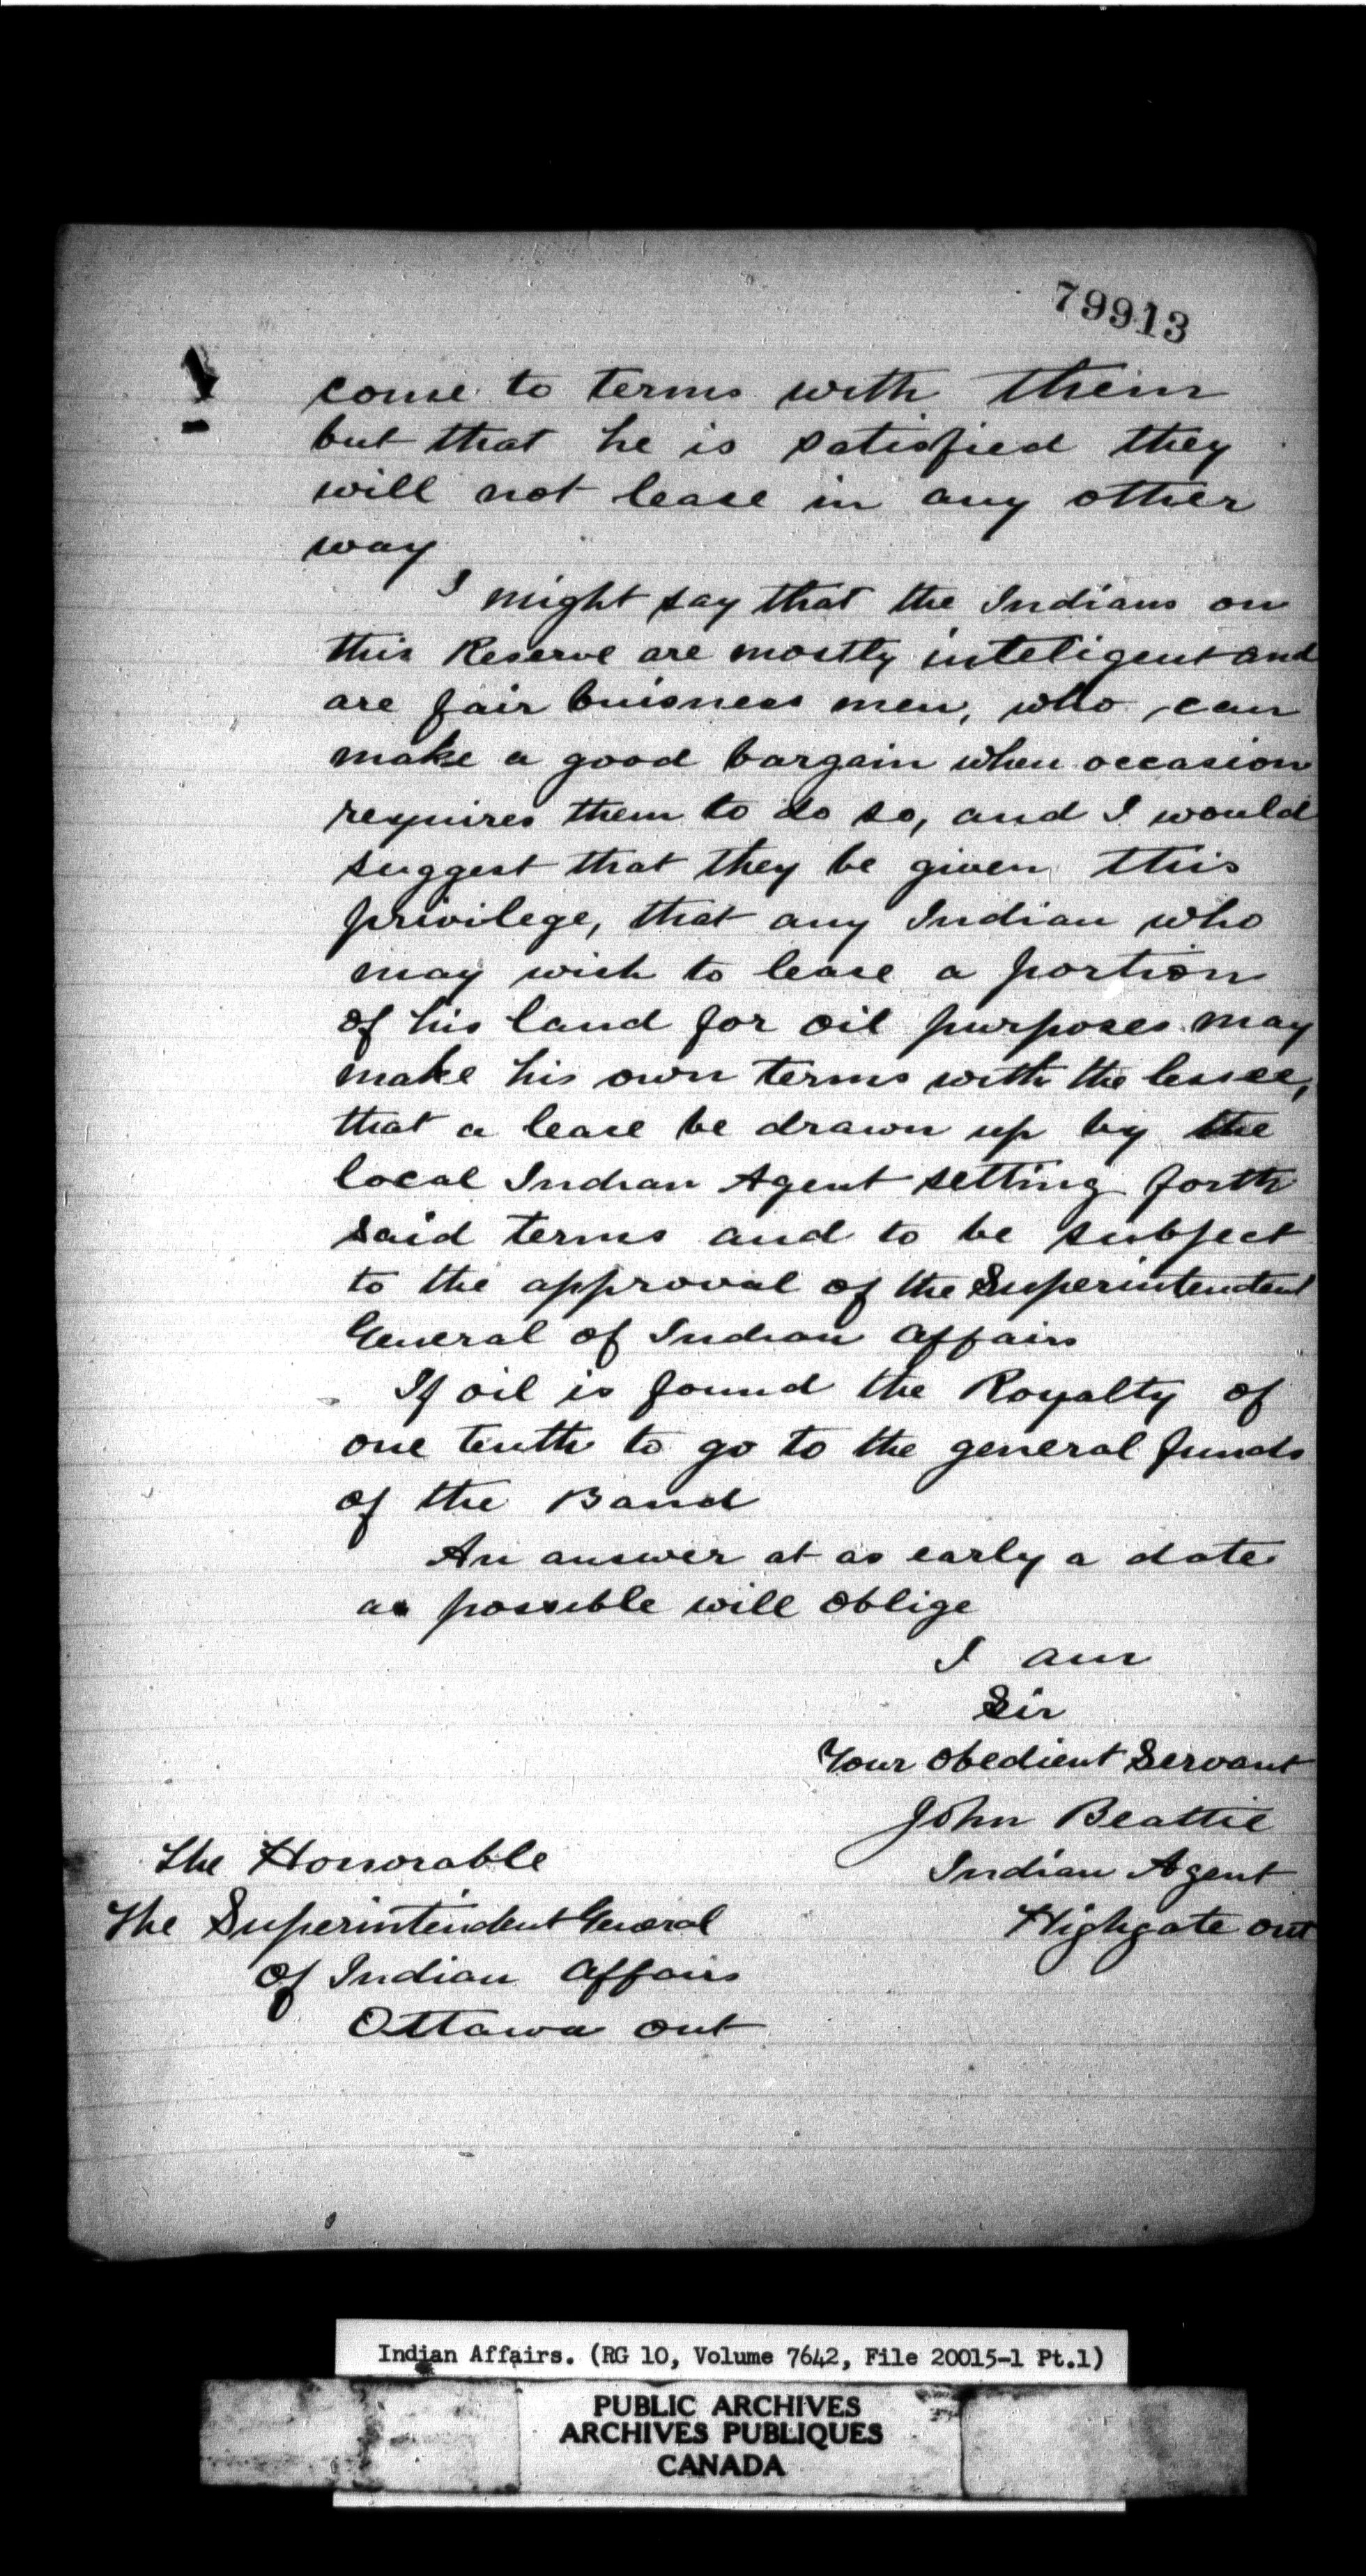 79913
come to terms with them
but that he is satisfied they
will not lease in any other
way
I might say that the Indians on
this Reserve are mostly inteligent and
are fair buisness men, who can
make a good bargain when occasion
requires them to do so, and I would
suggest that they be given this
privilege, that any Indian who
may wish to lease a portion
of his land for oil purposes may
make his own terms with the lessee,
that a lease be drawn up by the
local Indian Agent setting forth
said terms and to be subject
to the approval of the Superintendent
General of Indian Affairs
If oil is found the Royalty of
one tenth to go to the general funds
of the Band
An answer at as early a date
as possible will oblige
I am
Sir
Your Obedient Servant
John Beattie
Indian Agent
Highgate Ont
The Honorable
The Superintendent General
of Indian Affairs
Ottawa Ont
Indian Affairs. (RG 10, Volume 7642, File 20015-1 Pt.1)
PUBLIC ARCHIVES
ARCHIVES PUBLIQUES
CANADA